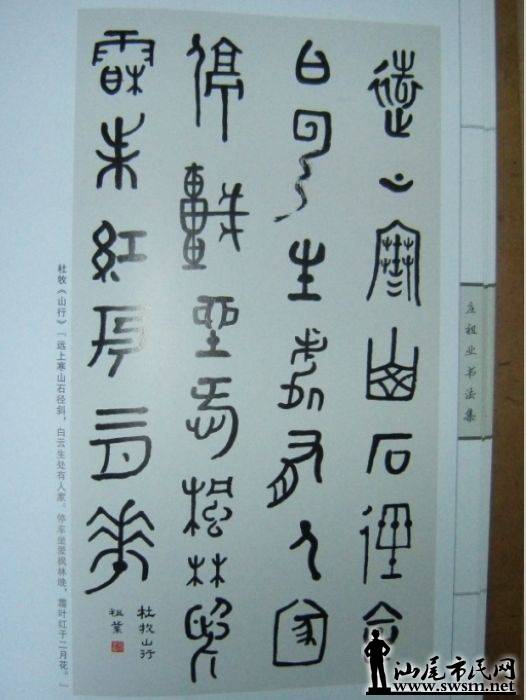 遠上寒山石徑斜
白云生處有人家
停車坐愛楓林晚
霜葉紅于二月花
杜牧山行
祖業
杜牧《山行》「远上寒山石径斜，白云生处有人家。停车坐爱枫林晚，霜叶红于二月花。」
庄祖业书法集
汕尾市民网
www.swsm.net